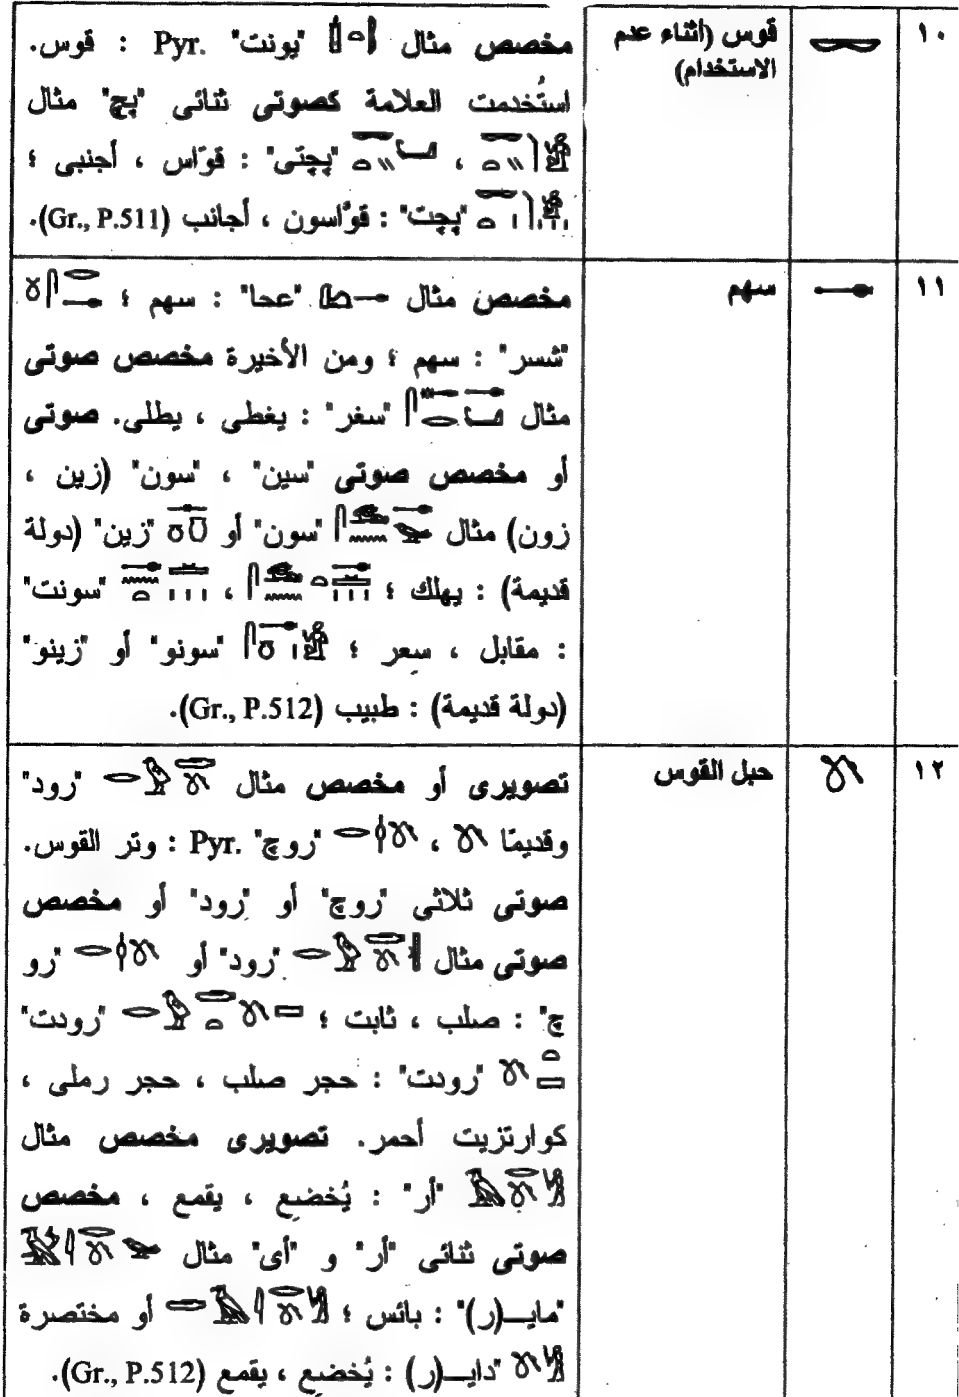 ١٠
قوس (أثناء عدم
الاستخدام)
مخصص مثال "يونت" Pyr. : قوس.
استُخدمت العلامة كصوتى ثنائى "پچ" مثال
، "پچتى" : قوّاس ، أجنبى ؛
"پچت" : قوّاسون ، أجانب (Gr., P.511).
١١
سهم
مخصص مثال "عحا" : سهم ؛
"شسر" : سهم ؛ ومن الأخيرة مخصص صوتى
مثال "سغر" : يغطى ، يطلى. صوتى
أو مخصص صوتى "سين" ، "سون" (زين ،
زون) مثال "سون" أو "زين" (دولة
قديمة) : يهلك ؛ ، "سونت"
: مقابل ، سعر ؛ "سونو" أو "زينو"
(دولة قديمة) : طبيب (Gr., P.512).
١٢
حبل القوس
تصويرى أو مخصص مثال "رود"
وقديمًا ، "روچ" Pyr. : وتر القوس.
صوتى ثلاثى "روچ" أو "رود" أو مخصص
صوتى مثال "رود" أو "رو
چ" : صلب ، ثابت ؛ "رودت"
"رودت" : حجر صلب ، حجر رملى ،
كوارتزيت أحمر. تصويرى مخصص مثال
"أر" : يُخضع ، يقمع ، مخصص
صوتى ثنائى "أر" و "أى" مثال
"مايـــ(ر)" : بائس ؛ أو مختصرة
"دايـــ(ر) : يُخضع ، يقمع (Gr., P.512).